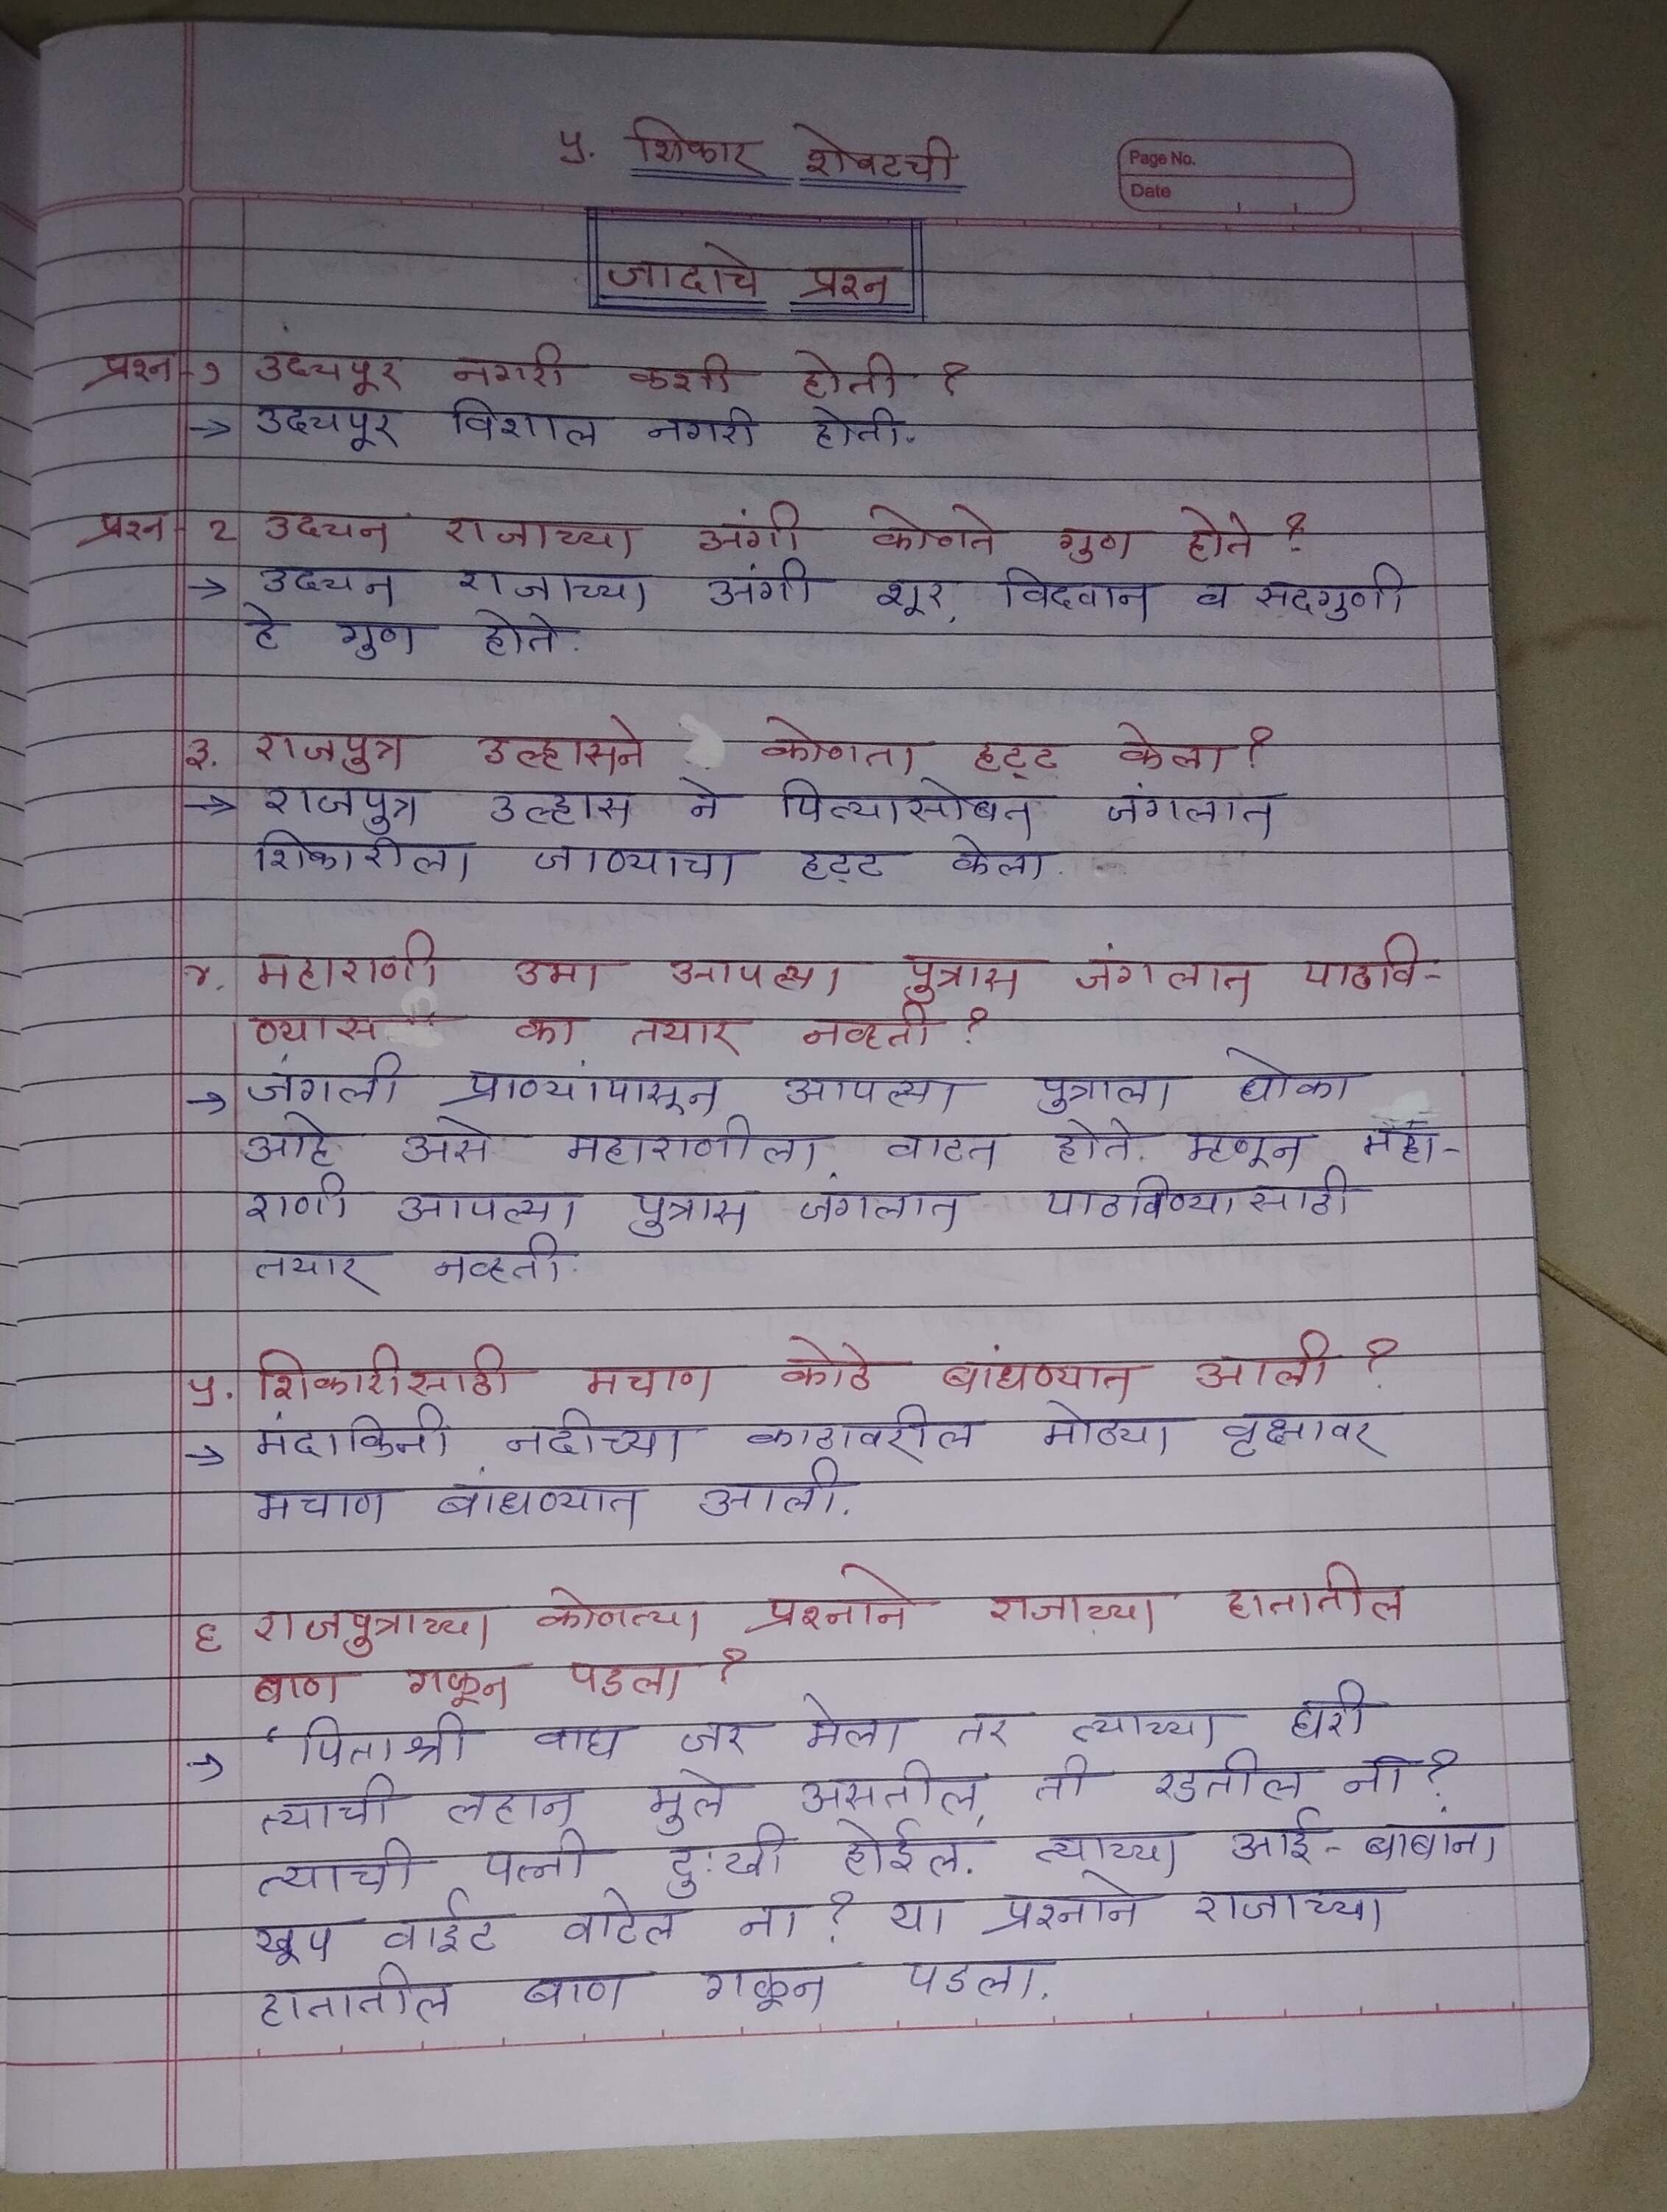 ५. शिकार शेवटची
Page No.
Date
जादाचे प्रश्न
प्रश्न-१ उदयपूर नगरी कशी होती ?
→ उदयपूर विशाल नगरी होती.
प्रश्न-२ उदयन राजाच्या अंगी कोणते गुण होते ?
→ उदयन राजाच्या अंगी शूर, विदवान व सदगुणी
हे गुण होते.
३. राजपुत्र उल्हासने कोणता हट्ट केला ?
→ राजपुत्र उल्हास ने पित्यासोबत जंगलात
शिकारीला जाण्याचा हट्ट केला.
४. महाराणी उमा आपल्या पुत्रास जंगलात पाठवि-
ण्यास का तयार नव्हती ?
→ जंगली प्राण्यांपासून आपल्या पुत्राला धोका
आहे असे महाराणीला, वाटत होते. म्हणून महा-
राणी आपल्या पुत्रास जंगलात पाठविण्यासाठी
तयार नव्हती.
५. शिकारीसाठी मचाण कोठे बांधण्यात आली ?
→ मंदाकिनी नदीच्या काठावरील मोठ्या वृक्षावर
मचाण बांधण्यात आली.
६ राजपुत्राच्या कोणत्या प्रश्नाने राजाच्या हातातील
बाण गळून पडला ?
→ ' पिताश्री वाघ जर मेला तर त्याच्या घरी
त्याची लहान मुले असतील, ती रडतील नी ?
त्याची पत्नी दुःखी होईल. त्याच्या आई-बाबांना
खूप वाईट वाटेल ना ? या प्रश्नाने राजाच्या
हातातील बाण गळून पडला.